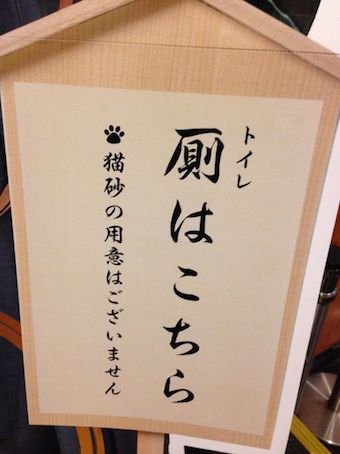 トイレ
厠はこちら
猫砂の用意はございません